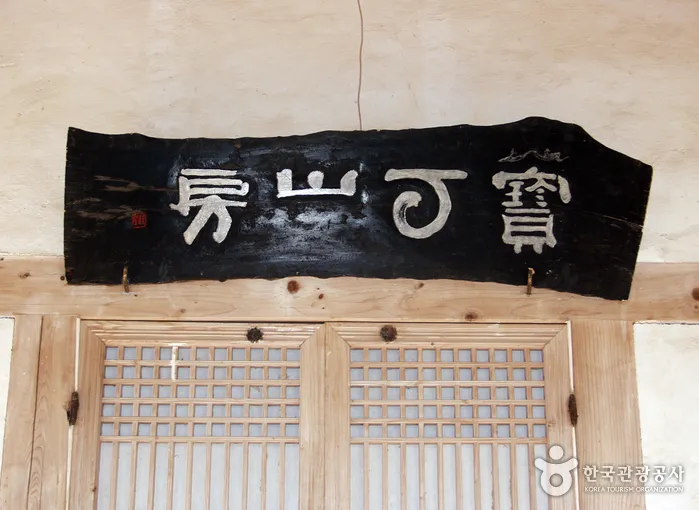 寶丁山房
한국관광공사
KOREA TOURISM ORGANIZATION